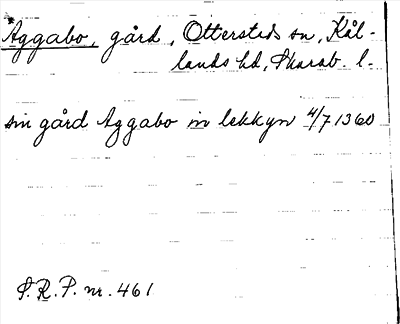 Aggabo, gård, Ottersteds sn, Kål-
lands hd, Skarab. l.
sin gård Aggabo in lekkyn 4/7 1360
S.R.P. nr. 461